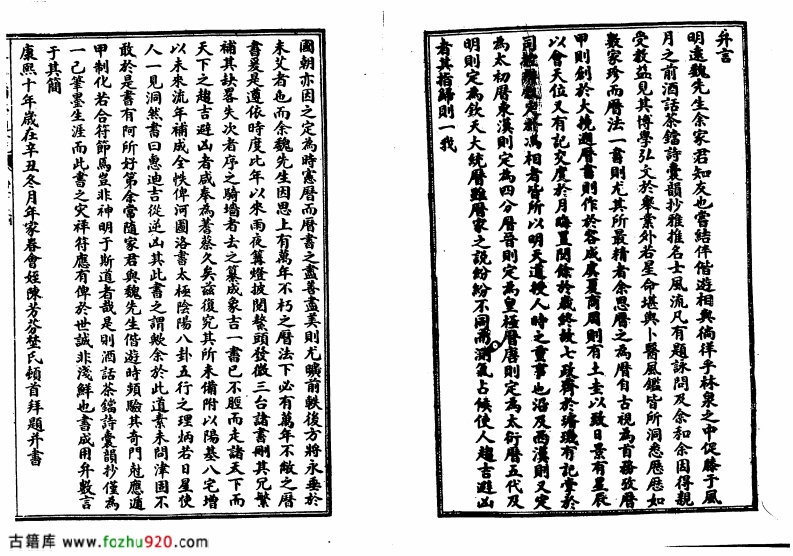 弁言
明遠魏先生余家君知友也嘗結伴偕遊相與徜徉乎林泉之中促膝于風
月之前酒話茶鐺詩囊韻抄雅推名士風流凡有題詠問及余和余因得親
受教益見其博學弘文於舉業外若星命堪輿卜醫風鑑皆所洞悉歷歷如
數家珍而曆法一書則尤其所最精者余思曆之為曆自古視為首務攷曆
甲則創於大撓迎曆書則作於容成虞夏商周則有土圭以致日景有星辰
以會天位又有記交度於月晦置閏餘於歲終故七政齊於璿璣有記掌於
馮相者皆所以明天道授人時之重事也沿及西漢則又定
為太初曆東漢則定為四分曆晉則定為皇極曆唐則定為太衍曆五代及
明則定為欽天大統曆雖曆家之說紛紛不同而測氣占候使人趨吉避凶
者其指歸則一我
國朝亦因之定為時憲曆而曆書之盡善盡美則尤曠前軼後方將永垂於
未艾者也而余魏先生因思上有萬年不朽之曆法下必有萬年不敝之曆
書爰是遵依時度比年以來雨夜篝燈披閱鰲頭發微三台諸書刪其冗繁
補其缺畧失次者序之騎墻者去之纂成象吉一書已不脛而走諸天下而
天下之趨吉避凶者咸奉為蓍蔡久矣茲復究其所未備附以陽基八宅增
以未來流年補成全帙俾河圖洛書太極陰陽八卦五行之理炳若日星使
人一見洞然書曰惠迪吉從逆凶其此書之謂歟余於此道素未問津固不
敢於是書有阿所好第余常隨家君與魏先生偕遊時頻驗其奇門尅應遁
甲制化若合符節焉豈非神明于斯道者哉是則酒話茶鐺詩囊韻抄僅為
一己筆墨生涯而此書之灾祥符應有俾於世誠非淺鮮也書成用弁數言
于其簡
康熙十年歲在辛丑冬月年家眷會姪陳芳芬埜氏頓首拜題并書
古籍库 www.fozhu920.com